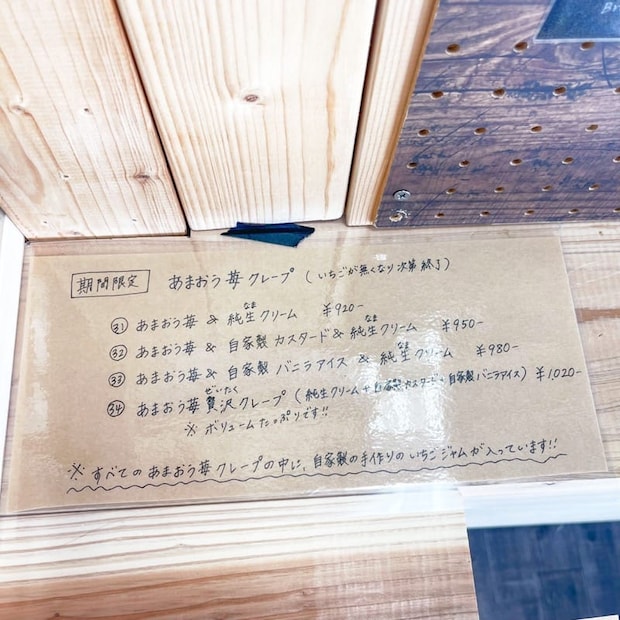 期間限定 あまおう苺クレープ (いちごが無くなり次第終了)
㉛ あまおう苺 & 純生クリーム ¥920-
㉜ あまおう苺 & 自家製カスタード & 純生クリーム ¥950-
㉝ あまおう苺 & 自家製バニラアイス & 純生クリーム ¥980-
㉞ あまおう苺贅沢クレープ (純生クリーム+自家製カスタード+自家製バニラアイス) ¥1,020-
※ ボリュームたっぷりです!!
※ すべてのあまおう苺クレープの中に、自家製の手作りのいちごジャムが入っています!!